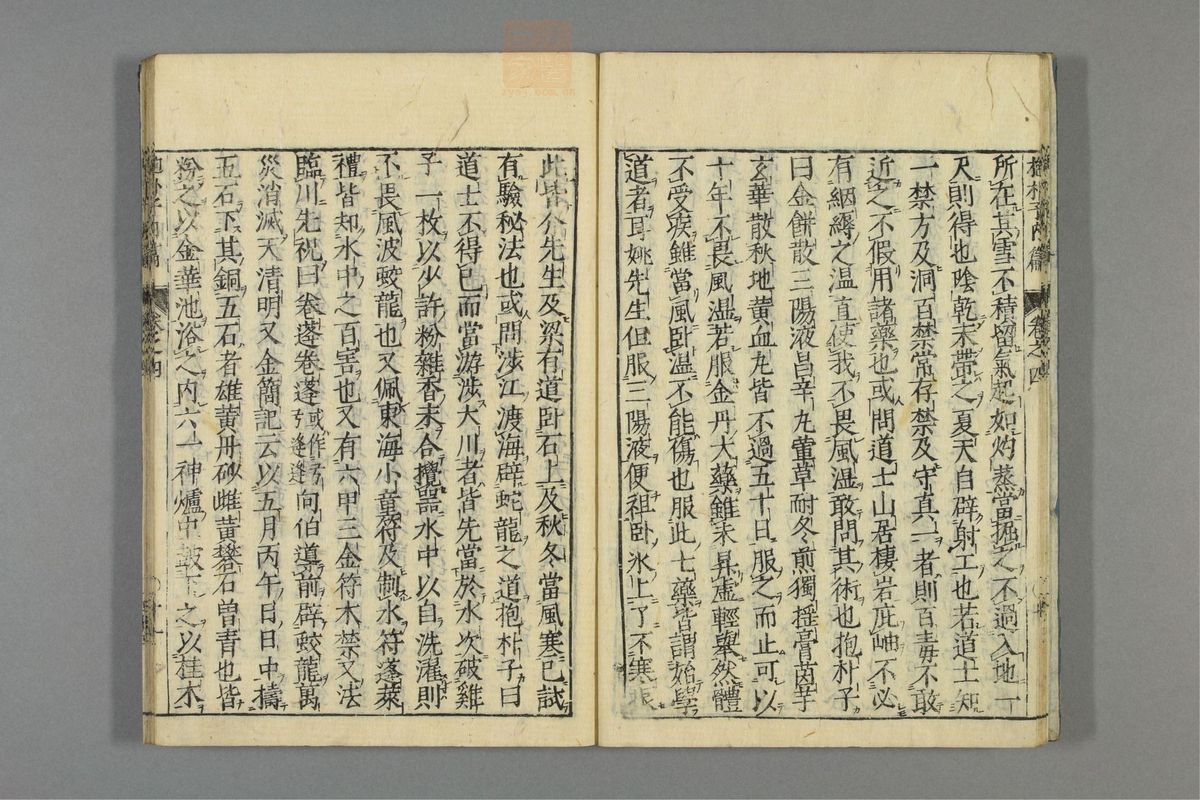 所在其雪不積留氣起如灼蒸當掘之不過入地一
尺則得也陰乾末帶之夏天自辟射工也若道士知
一禁方及洞百禁常存禁及守真一者則百毒不敢
近之不假用諸藥也或問道士山居棲岩庇岫不必
有絪縟之温直使我不畏風湿敢問其術也抱朴子
曰金餅散三陽液昌辛丸葷草耐冬煎獨搖膏茵芋
玄華散秋地黄血丸皆不過五十日服之而止可以
十年不畏風湿若服金丹大藥雖未昇虚輕舉然體
不受疾雖當風卧湿不能傷也服此七藥皆謂始學
道者耳姚先生但服三陽液便袒卧氷上了不寒振
此皆介先生及梁有道卧石上及秋冬當風寒已試
有驗秘法也或問涉江渡海辟蛇龍之道抱朴子曰
道士不得已而當游涉大川者皆先當於水次破雞
子一枚以少許粉雜香末合攪器水中以自洗濯則
不畏風波蛟龍也又佩東海小童符及制水符蓬萊
禮皆却水中之百害也又有六甲三金符木禁又法
臨川先祝曰卷蓬卷蓬或作弓弓逢逢向伯導前辟蛟龍萬
災消滅天清明又金簡記云以五月丙午日日中擣
五石下其銅五石者雄黄丹砂雌黄礬石曽青也皆
粉之以金華池浴之内六一神爐中鼓下之以桂木
抱朴子内篇 卷之四